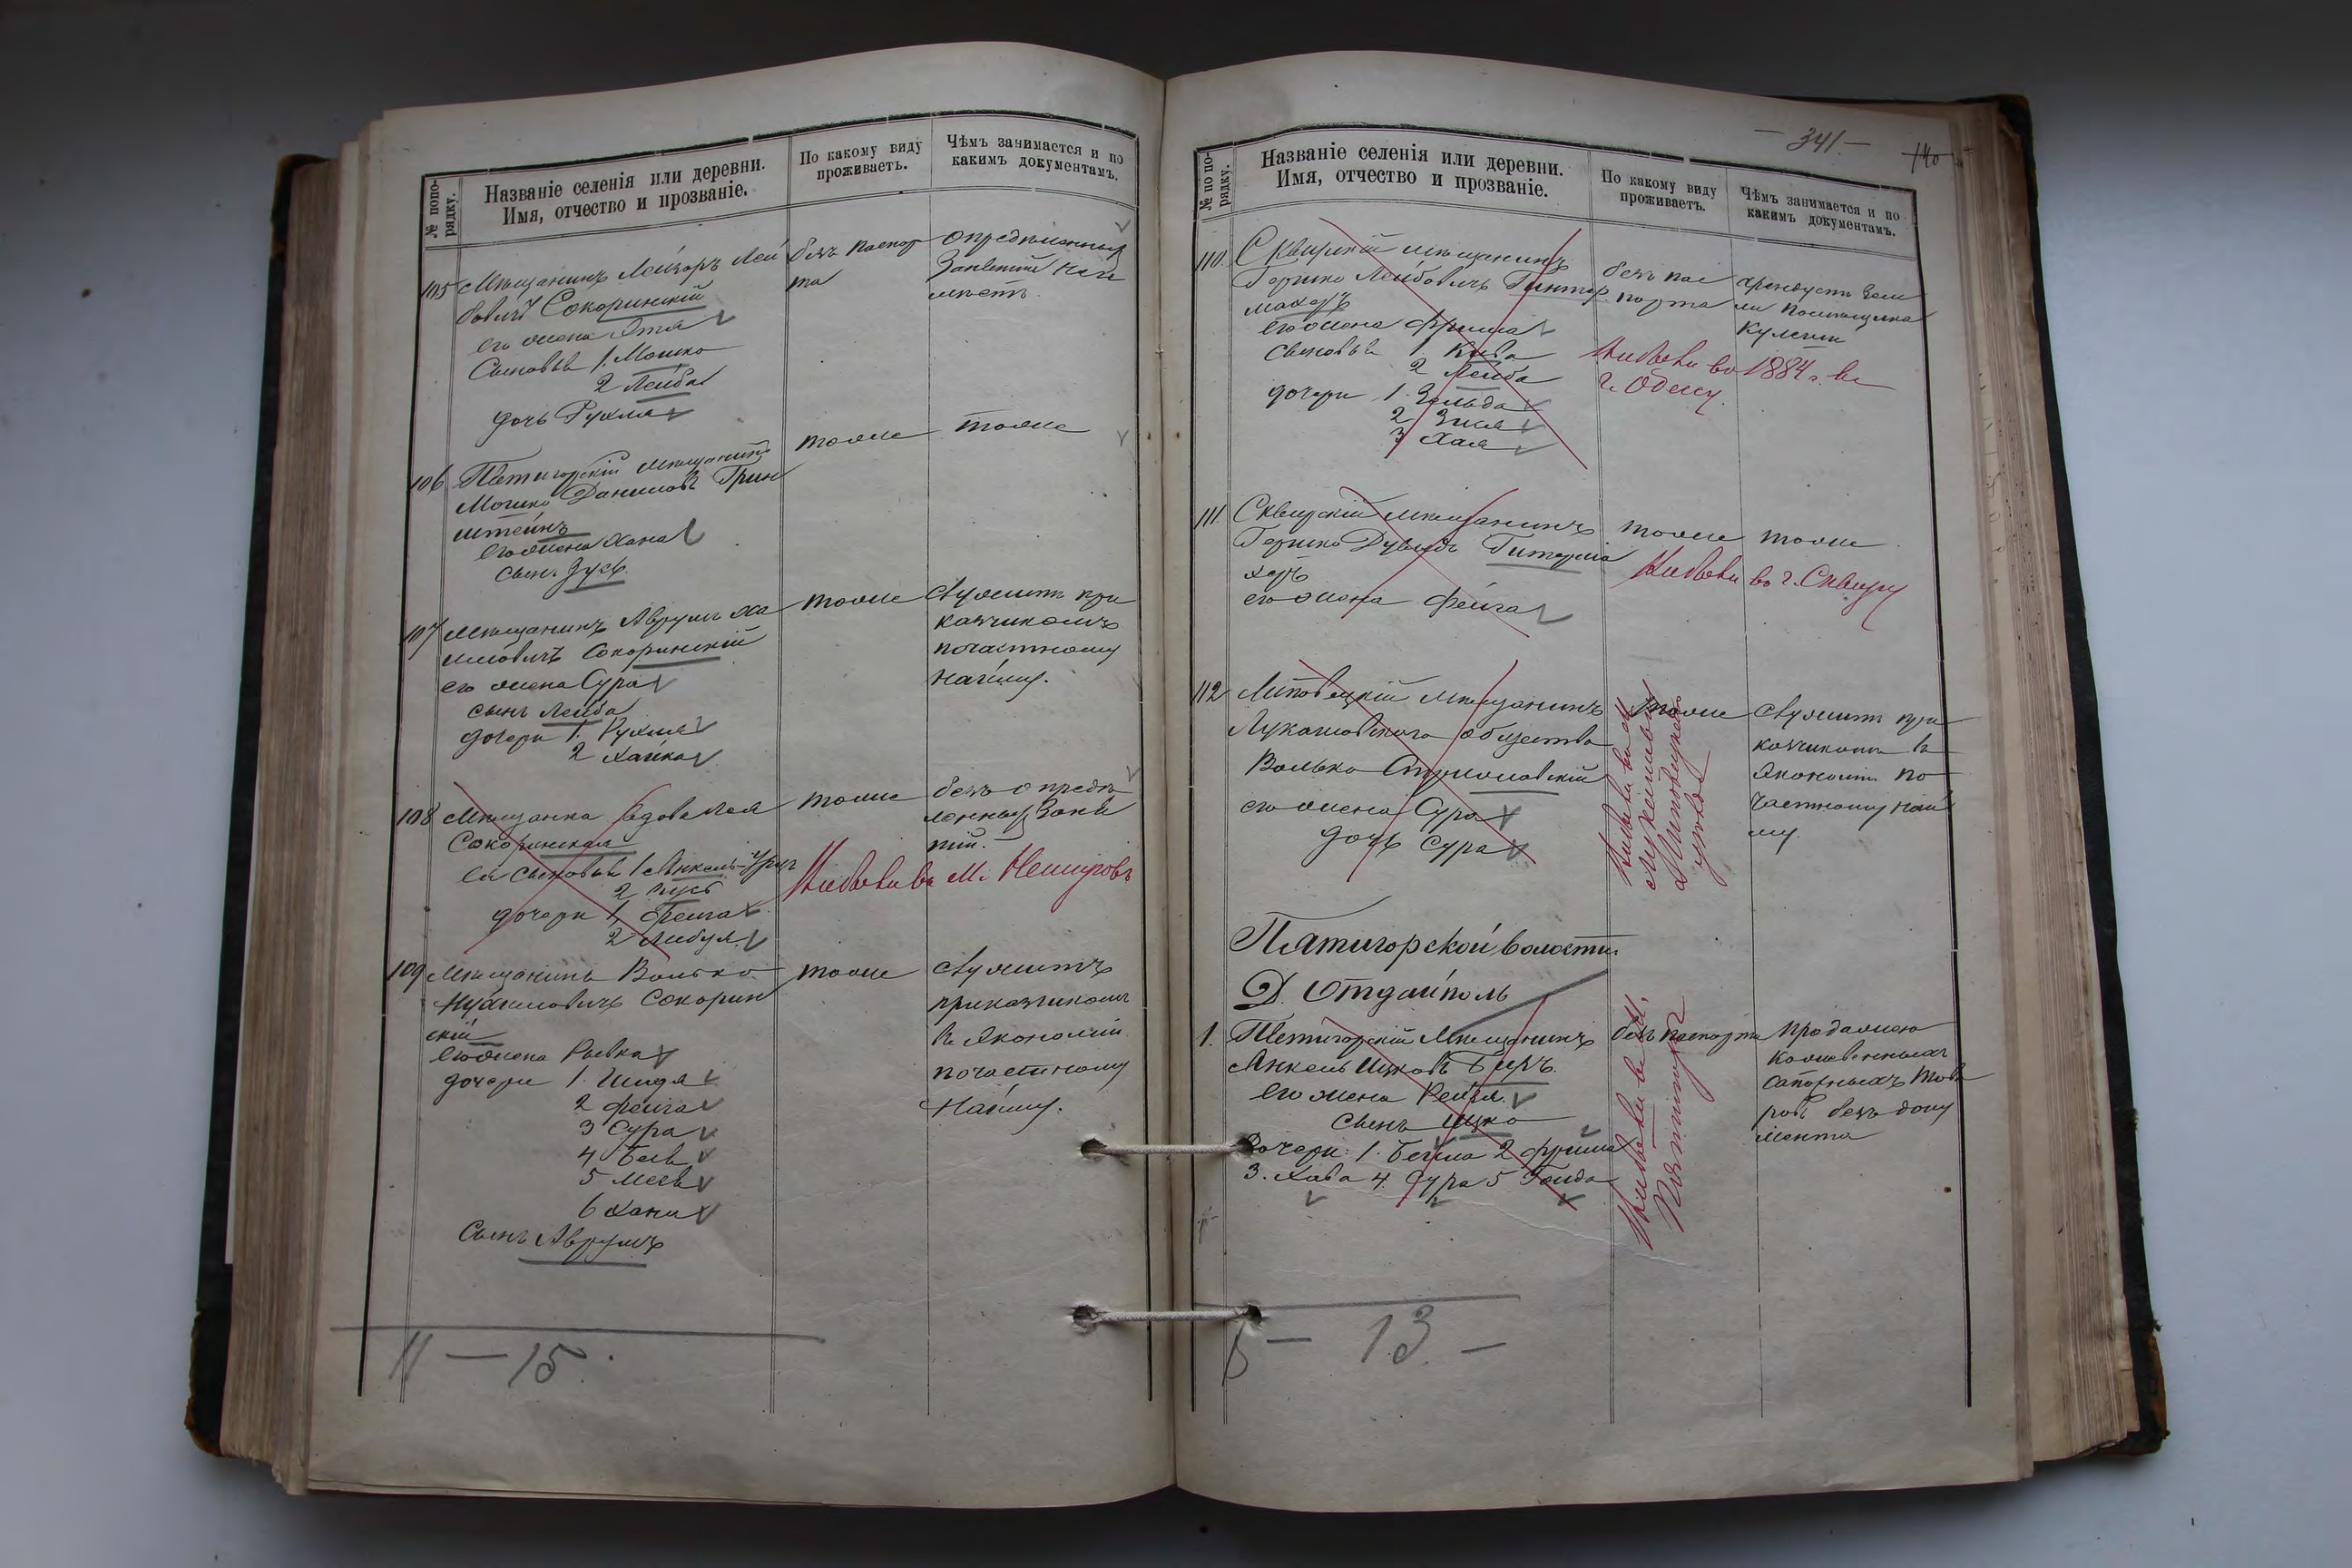 № попо-
рядку.
Названіе селенія или деревни.
Имя, отчество и прозваніе.
По какому виду
проживаетъ.
Чѣмъ занимается и по
какимъ документамъ.
105 Мѣщанинъ Лейзоръ Лей
бовичъ Сокоринскій
его жена Этя
Сыновья 1. Мошко
2 Лейба
дочь Рухля
безъ паспор
та
опредѣленныхъ
Занятій не и
мѣетъ
106 Пятигорскій мѣщанинъ
Мошко Даниловъ Грин
штейнъ
его жена Хана
сынъ Зусь.
тоже
тоже
107 Мѣщанинъ Аврумъ Ха
имовичъ Сокоринскій
его жена Сура
сынъ Лейба
дочери 1. Рухля
2 Хайка
тоже
служитъ при
казчикомъ
почастному
найму.
108 Мѣщанка вдова
Сокоринская
ея сыновья 1 Янкель-
2 Зусь
дочери 1. Фейга
2
тоже
безъ опредѣ
ленныхъ Заня
тій.
Выбыли въ М. Немировъ
109 Мѣщанинъ Волько
Нухимовичъ Сокорин
скій
его жена Ривка
дочери 1.
2 Фейга
3 Сура
4 Бейля
5
6 Хана
Сынъ Аврумъ
тоже
служитъ
приказчикомъ
въ Экономіи
почастному
Найму.
11 — 15.
— 341 —
140
№ по по-
рядку.
Названіе селенія или деревни.
Имя, отчество и прозваніе.
По какому виду
проживаетъ.
Чѣмъ занимается и по
какимъ документамъ.
110 Сквирскій мѣщанинъ
Гершко Лейбовичъ
махеръ
его жена Фрима
сыновья 1. Кива
2 Лейба
дочери 1. Зельда
2 Зися
3 Хая
безъ пас
порта
арендуетъ Зем
ли помѣщика
Выбыли въ 1884 г. въ
г. Одессу.
111. Сквирскій мѣщанинъ
Гершко Дувидъ
херъ
его жена Фейга
тоже
тоже
Выбыли въ г. Сквиру
112 Липовецкій мѣщанинъ
Лукашовского общества
Волько
его жена Сура
дочь Сура
тоже
служитъ при
казчикомъ въ
Экономіи по
частному най
му.
Выбыли въ
уѣзда
Пятигорской волости
Д. Отдайполь
1. Пятигорскій Мѣщанинъ
Янкель Ицковъ Биръ.
его жена Рейзя.
сынъ Ицко
Дочери: 1. Бейла 2 Фрима
3. Хава 4. Сура 5 Голда
безъ паспорта
продажею
кожевенныхъ
сапожныхъ това
ровъ безъ доку
мента
Выбыли въ М.
Пятигоры
6 — 13. —